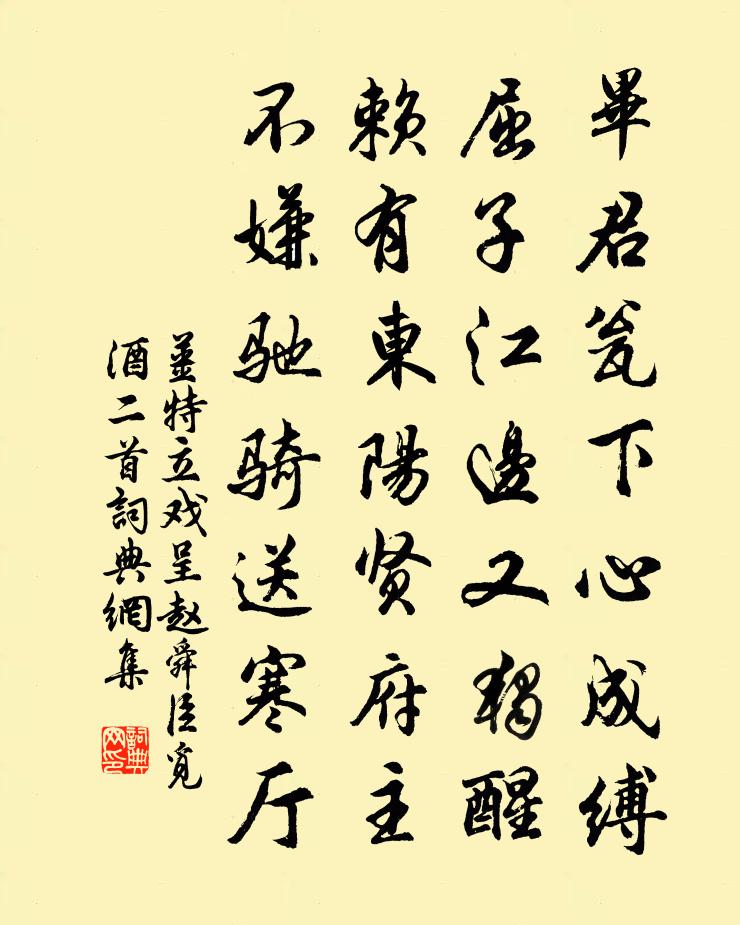 畢君瓮下心成縛
屈子江邊又獨醒
赖有東陽贤府主
不嫌驰骑送寒厅
姜特立戏呈赵舜臣覓
酒二首詞典網集
詞典网印